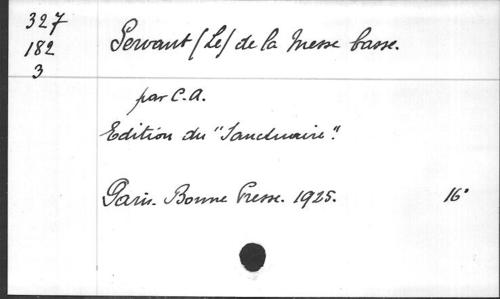 327
182
3
Servant (Le) de la Messe basse.
par C.A.
Edition du "Sanctuaire".
Paris. Bonne Presse. 1925. 16°